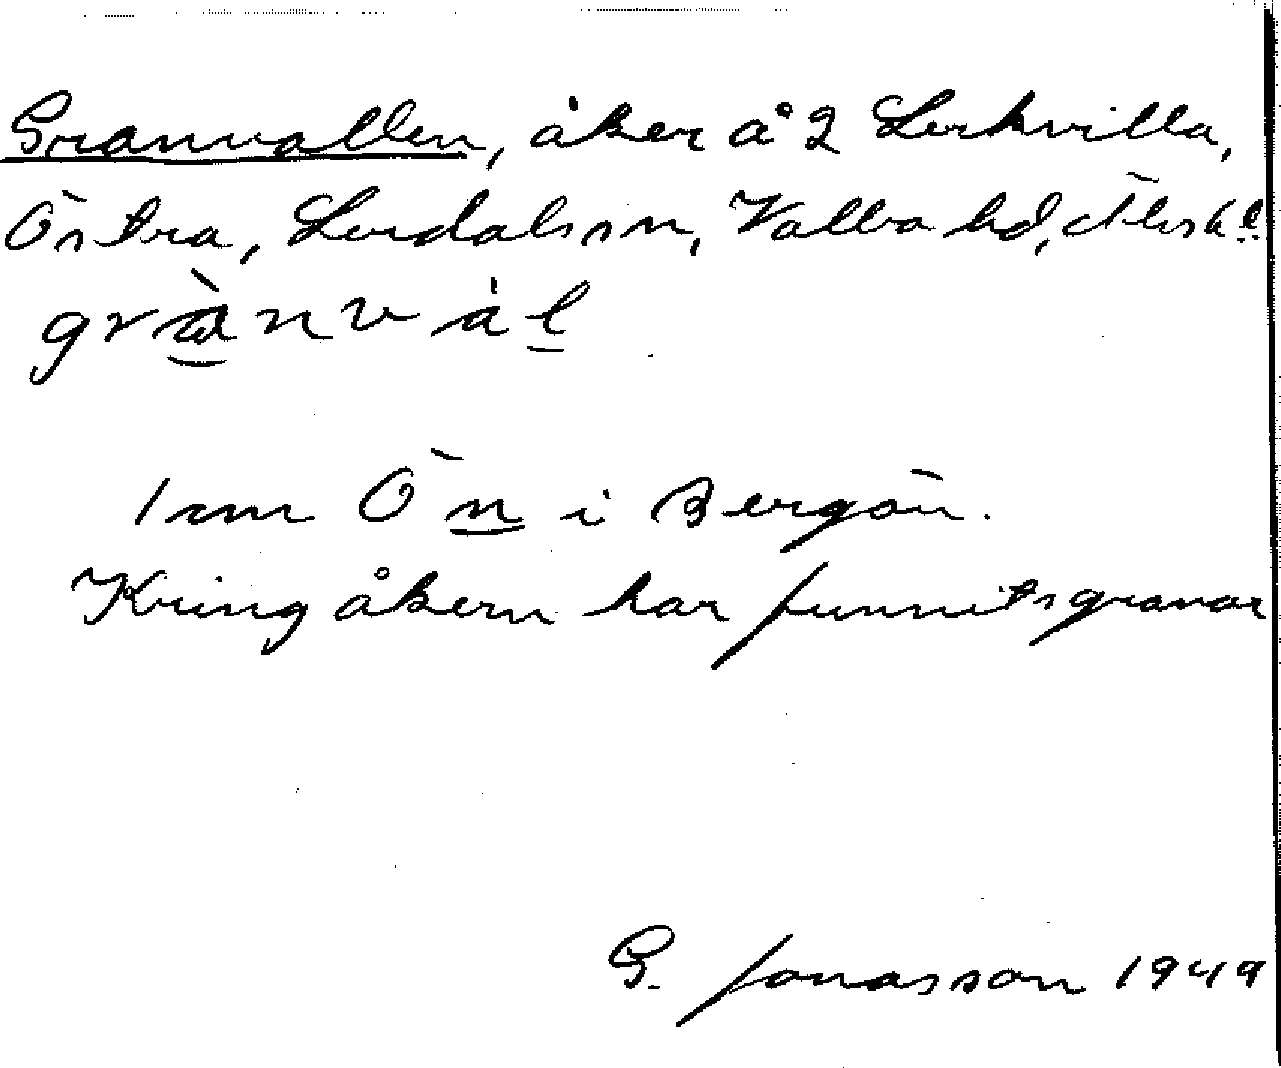 Granvallen, åker å 2 Lerkvilla,
Östra, Lerdals sn, Valbo hd, Älvsb.l.
grànvàl
1 sm Ön i Bergön.
Kring åkern har funnits granar
G. Jonasson 1949